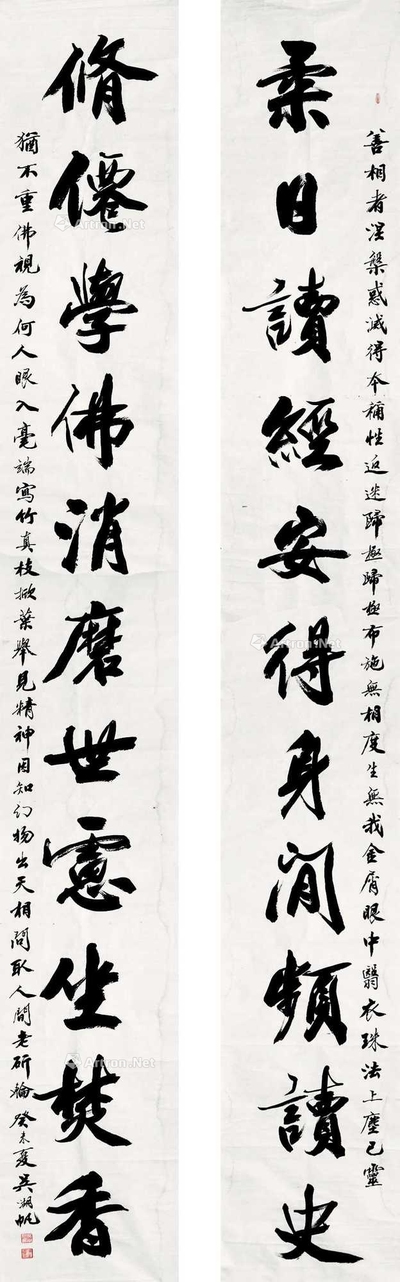 善相者涅槃惑滅得本稱性返迷歸極歸極布施無相度生無我金屑眼中翳衣珠法上塵己靈
柔日讀經安得身閒頻讀史
脩僊學佛消磨世慮坐焚香
猶不重佛視為何人眼入毫端寫竹真枝掀葉舉見精神因知幻物出天相問取人間老斫輪 癸未夏吳湖帆
Artron.Net
Artron.Net
Artron.Net
Artron.Net